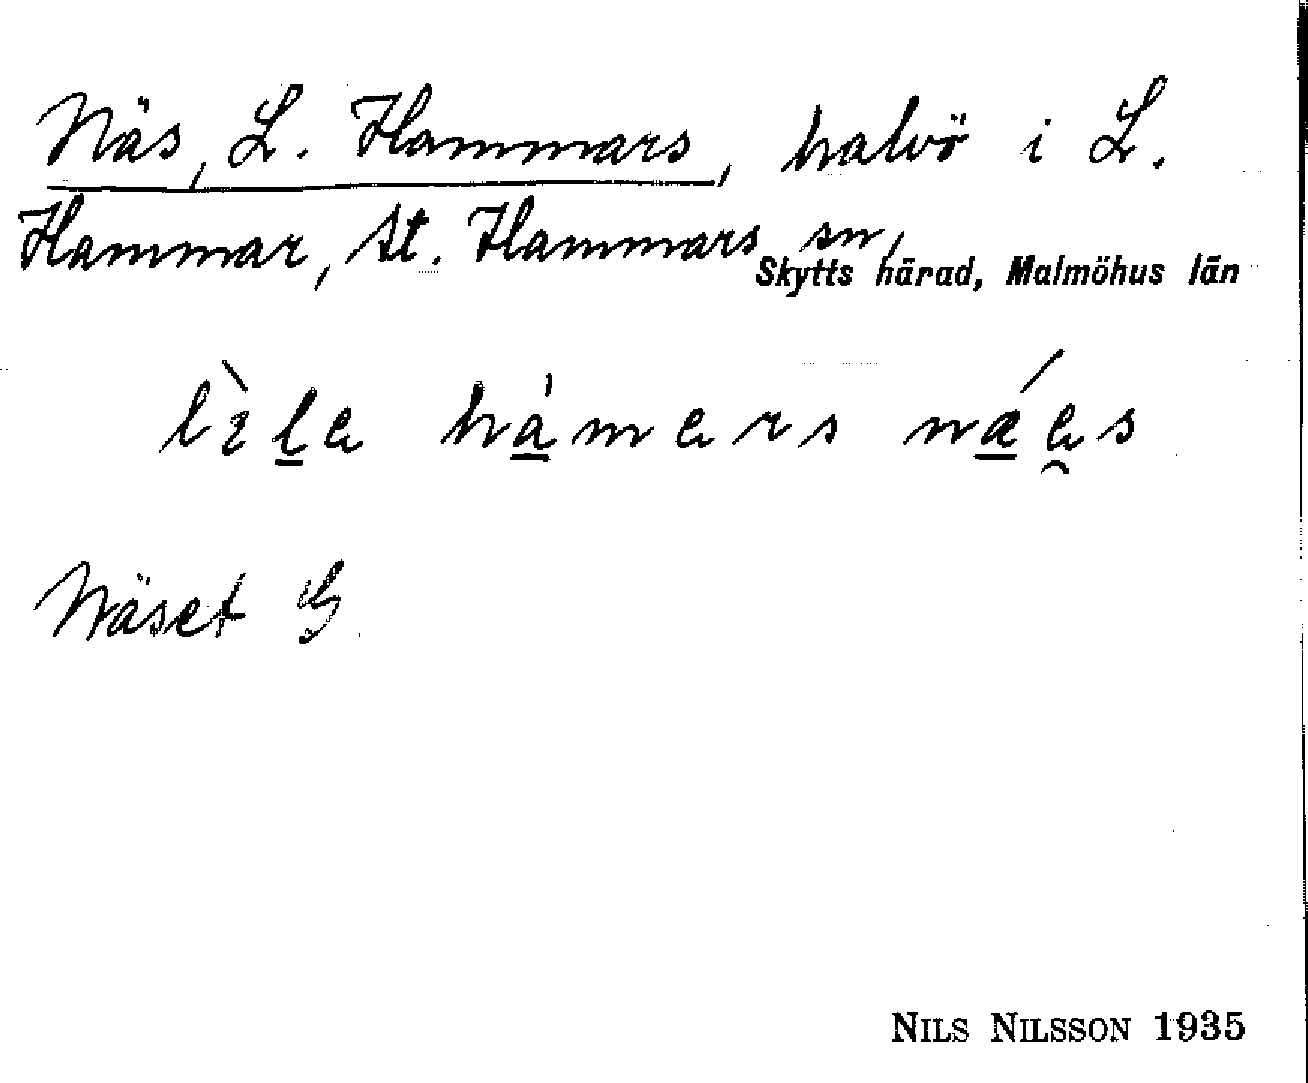 Näs, L. Hammars, halvö i L.
Hammar, St. Hammars sn,
Skytts härad, Malmöhus län
lìla hámars nǽa̯s
Näset G
NILS NILSSON 1935